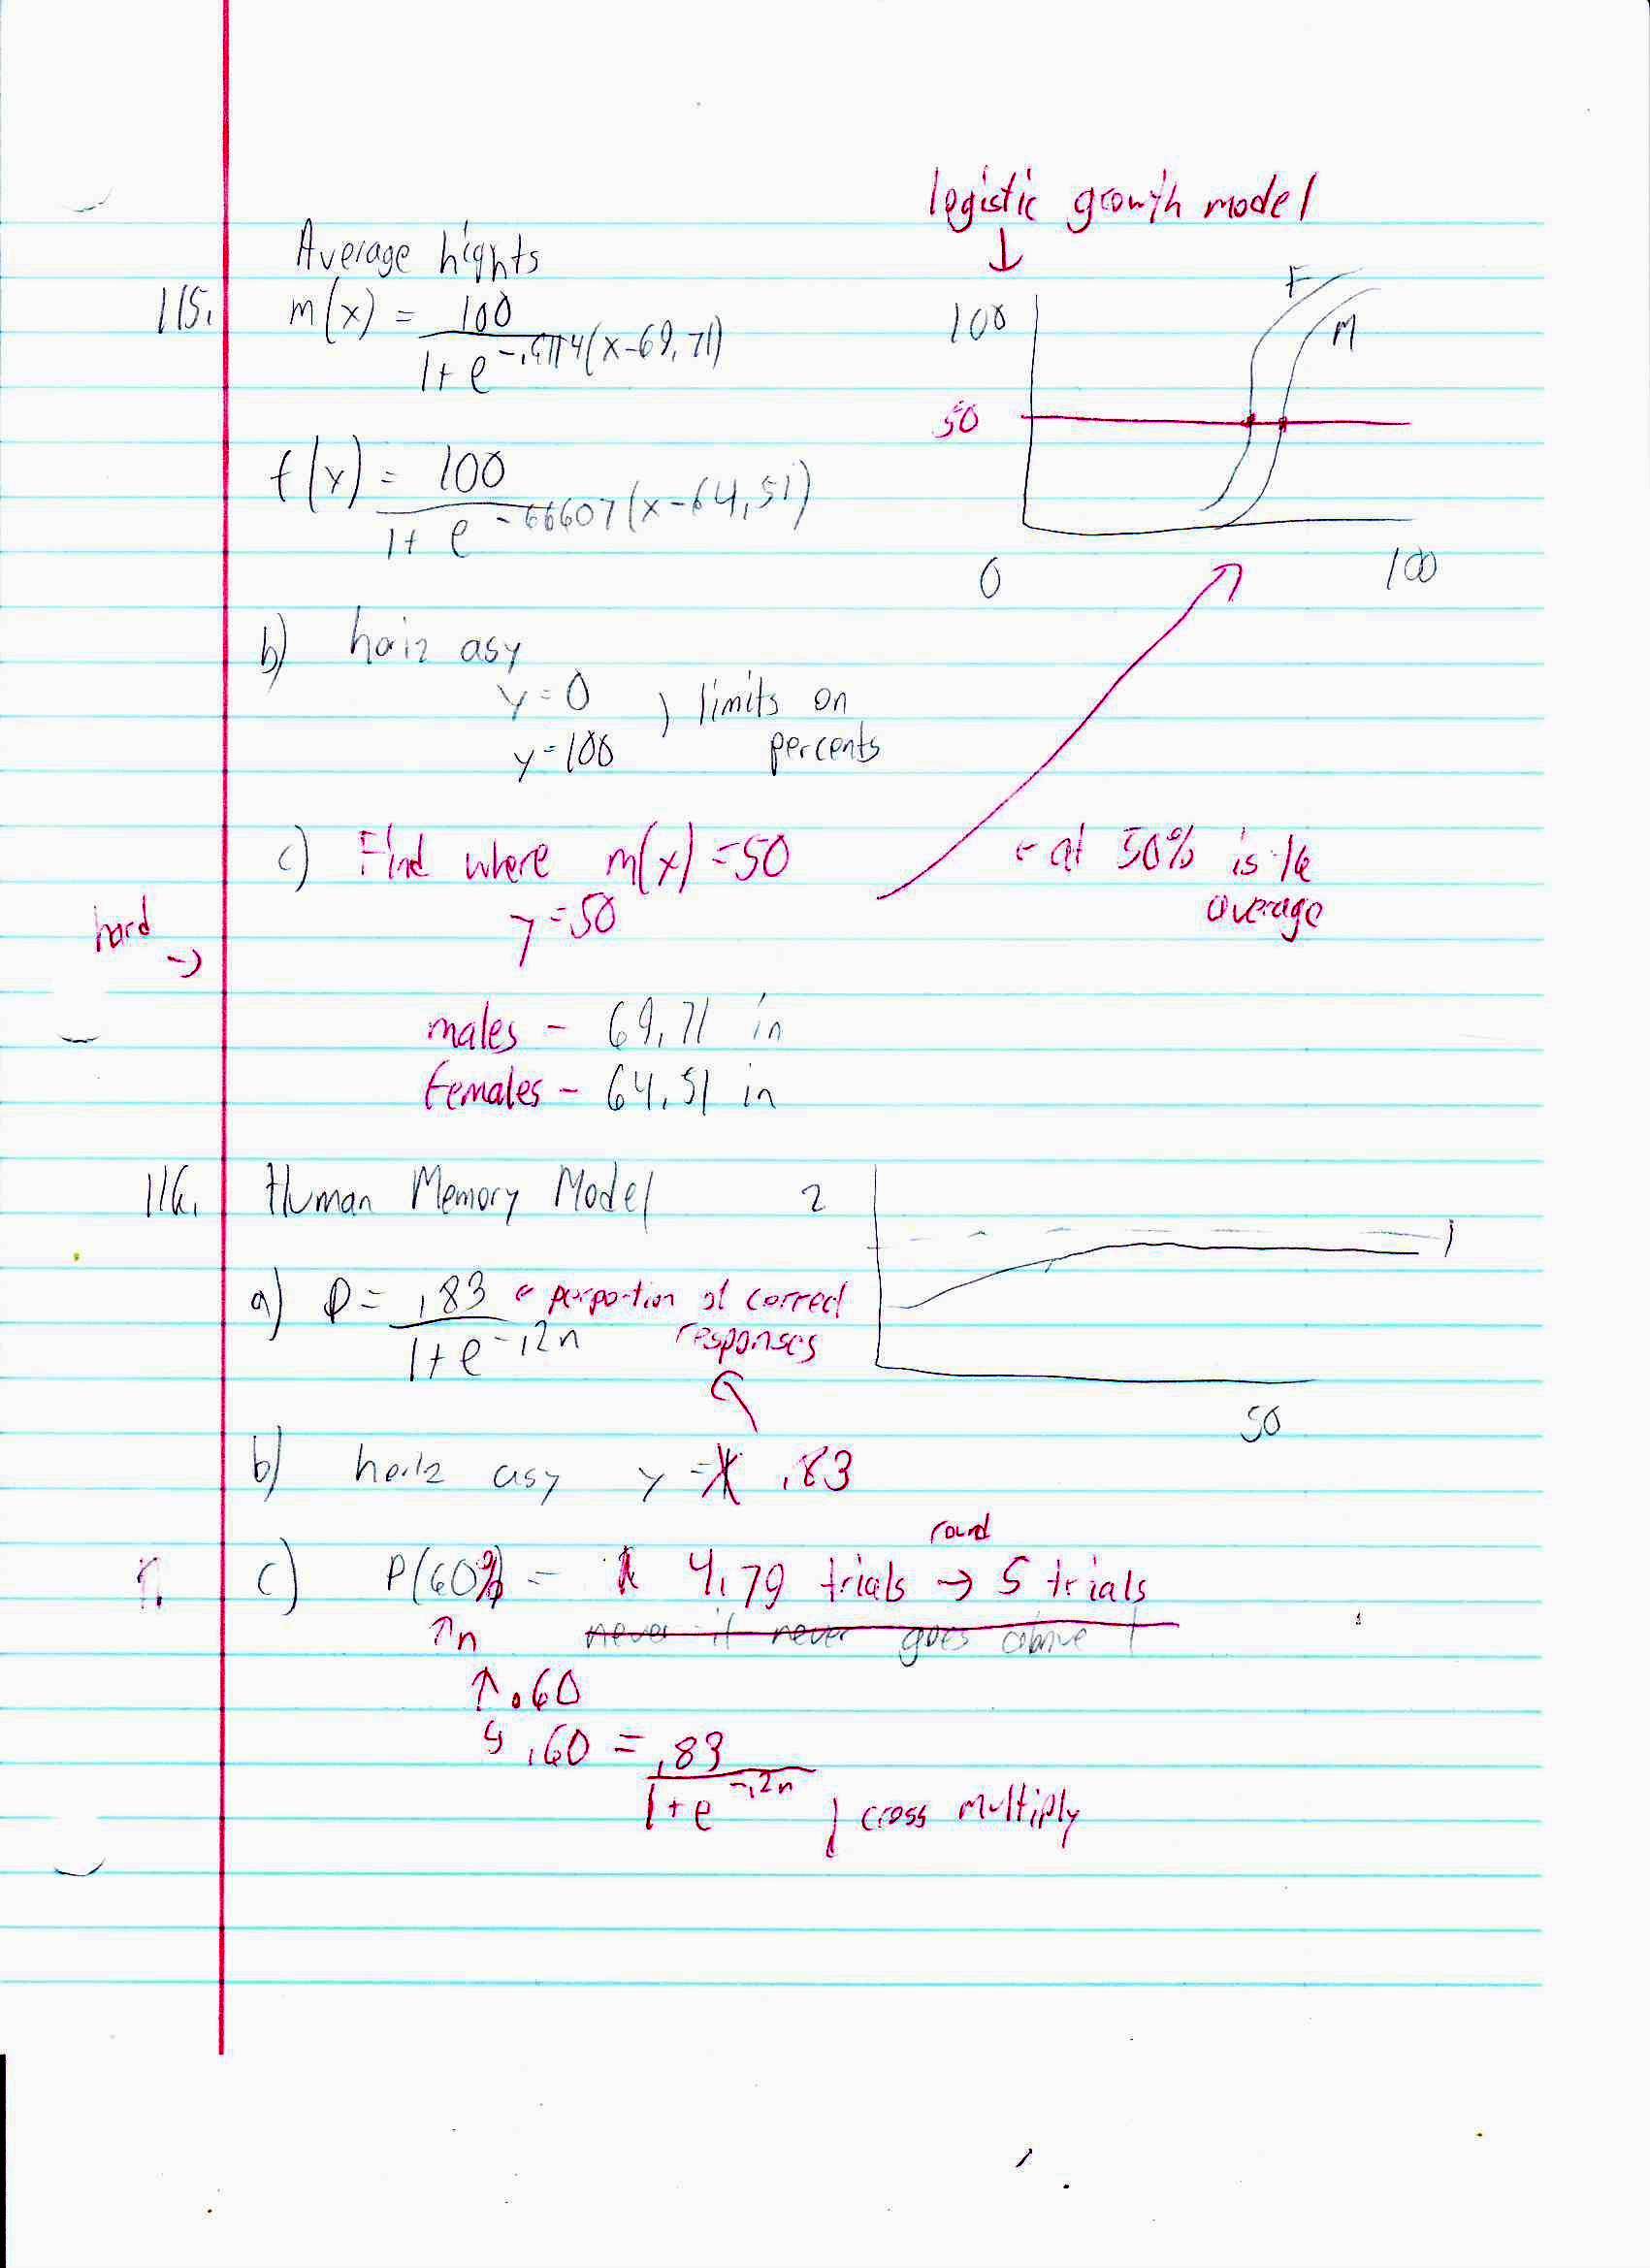 logistic growth model
↓
Average hights
115. m(x) = 100
1+ e -.6114(x-69.71)
F
M
100
50
0
100
f(x) = 100
1+ e -66607(x-64,51)
b) horiz asy
y=0
y=100
) limits on
percents
c) Find where m(x) =50
y=50
← at 50% is the
average
hard
→
males - 69.71 in
females - 64.51 in
116. Human Memory Model
2
1
50
a) P = .83 ← perportion of correct
responses
1+e -.2n
b) horiz asy y = .83
c) P(60%) = 4.79 trials → 5 trials
round
↑n
never it never goes above 1
↑.60
↳ .60 = .83
1+e -.2n
cross multiply